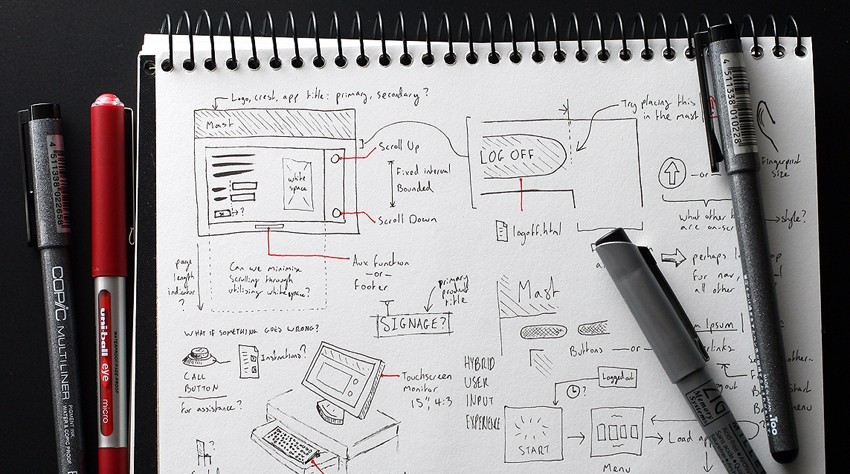 Logo, crest, app title: primary, secondary?
Mast
Scroll Up
Fixed interval
Bounded
Scroll Down
white
space
?
Aux Function
- or -
Footer
Can we minimise
scrolling through
utilising whitespace?
page
length
indicator
?
LOG OFF
Try placing this
in the mast
logoff.html
Fingerprint
size
- or -
what other
are on-scr
style?
perhaps
for nav,
all other
primary
product
title
SIGNAGE?
Mast
Buttons - or -
Ipsum
WHAT IF SOMETHING GOES WRONG?
CALL
BUTTON
for assistance?
Instructions?
Touchscreen
monitor
15", 4:3
HYBRID
USER
INPUT
EXPERIENCE
?
Logged out
START
Menu
Load
?
COPIC MULTILINER
PIGMENT INK
WATER & COPIC PROOF
4511338 022658
uni-ball
eye
micro
4511338 010228
Too